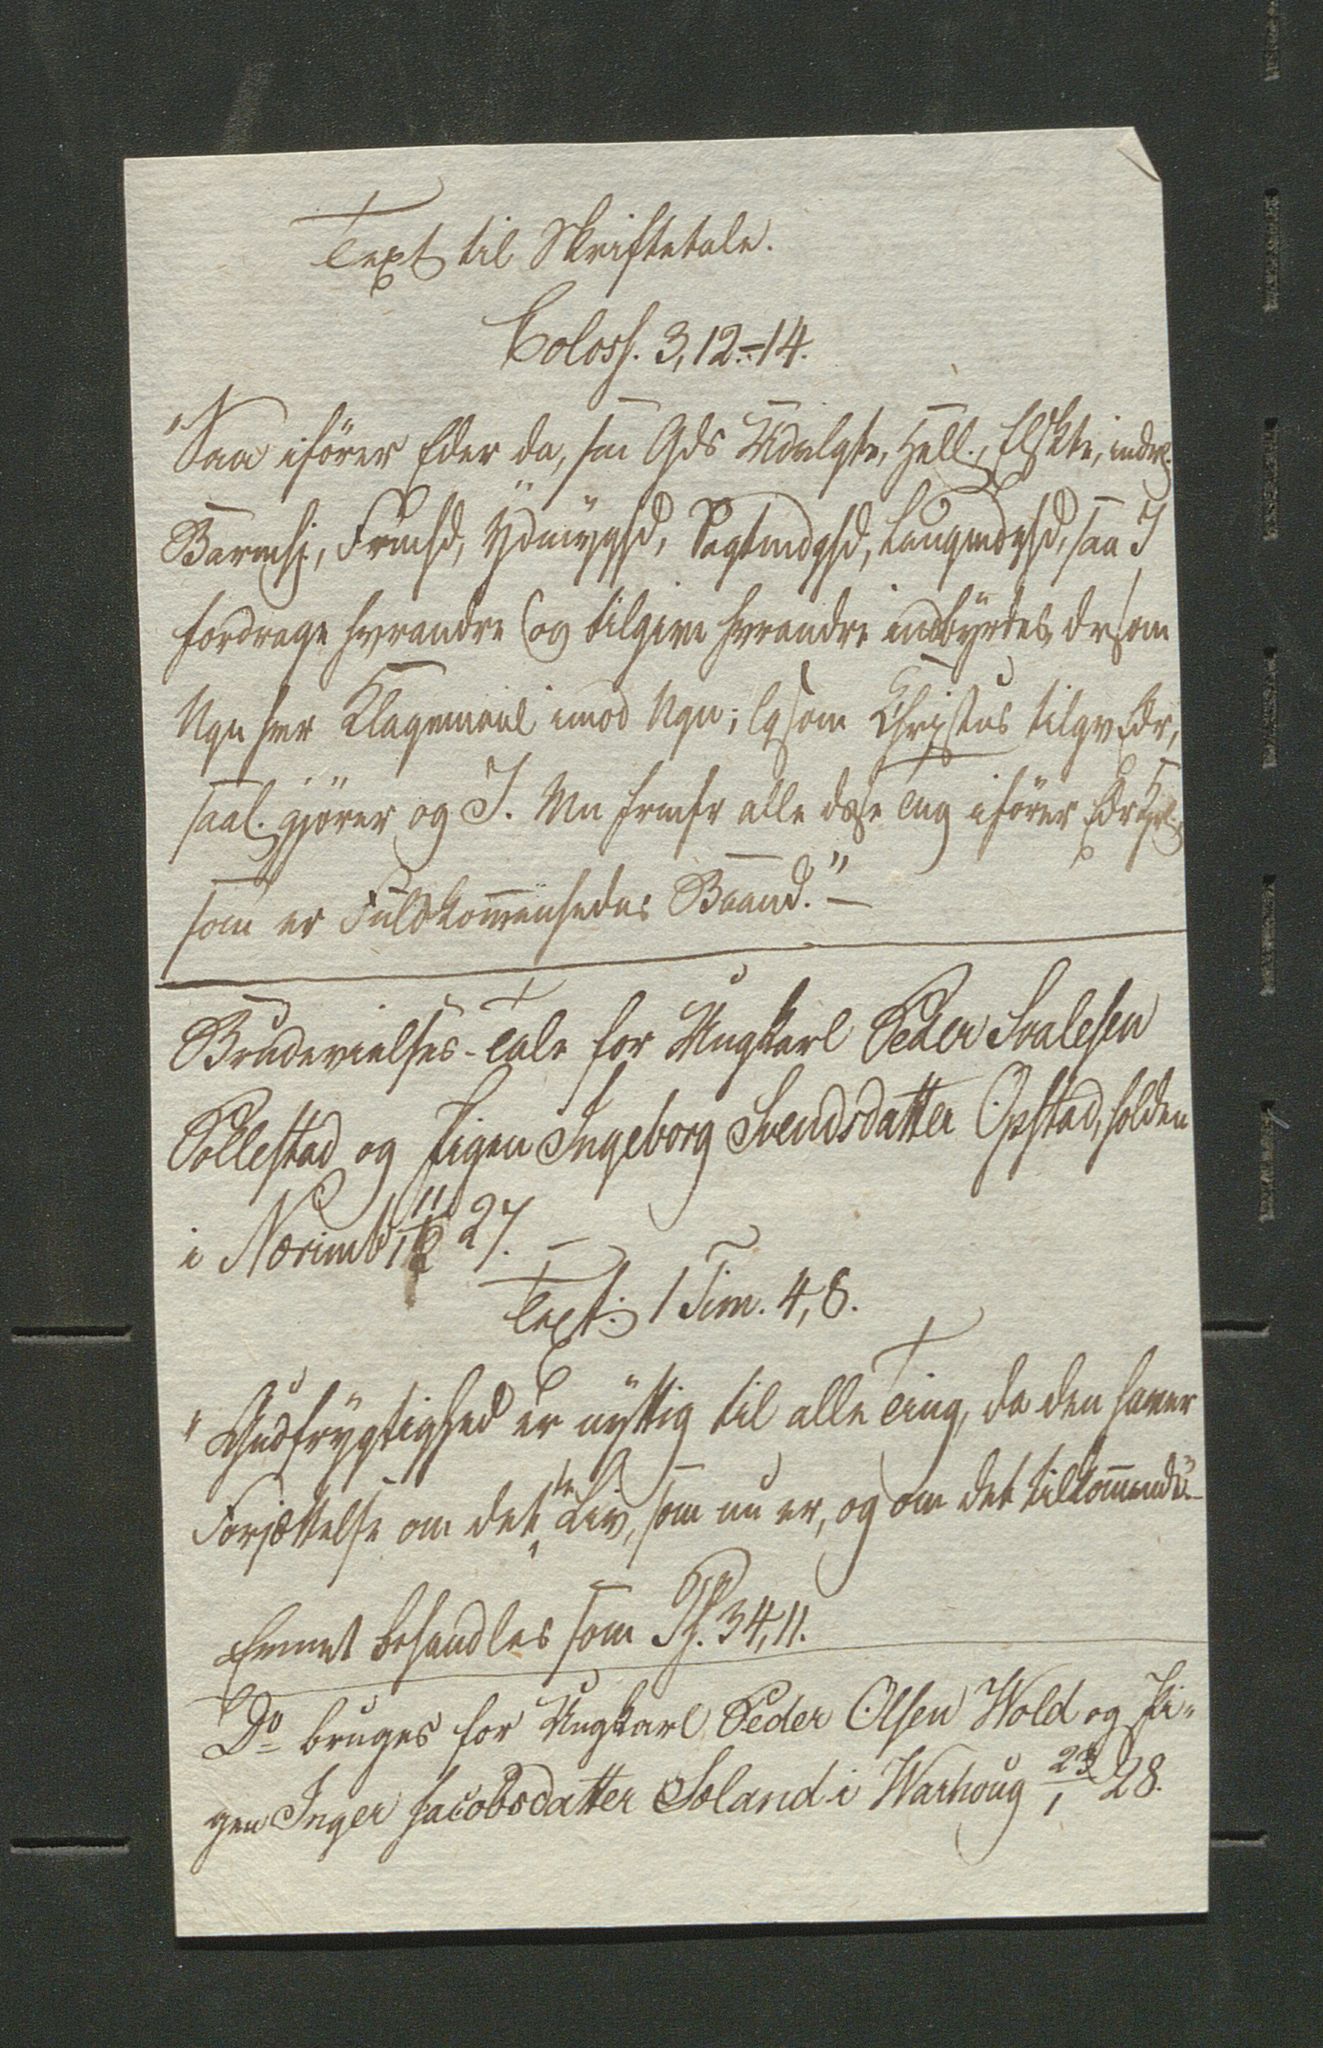 Text til Skriftetale.
Coloss. 3, 12.-14.
"Saa ifører Eder da, som Gds Udvalgte, Hell., Elskte, indrl.
Barmhj., Frmhd, Ydmyghd, Sagtmdghd, Langmdghd, saa I
fordrage hvrandre og tilgive hvrandre indbyrdes, drsom
Ngn hvr Klagemaal imod Ngn; lgsom Christus tilgv Edr,
saal. gjører og I. Mn frmfr alle disse Ting ifører Edr Kjrl.,
som er Fuldkommenhedens Baand." —
Brudevielses-Tale for Ungkarl Peder Svalesen
Pollestad og Pigen Ingeborg Svendsdatter Opstad, holden
i Nærimb 11/12 27. —
Text: 1 Tim. 4, 8.
"Gudfrygtighed er nyttig til alle Ting, da den haver
Forjættelse om det Liv, som nu er, og om det tilkommende."
Emnet behandles som Ps. 34, 11.
Do bruges for Ungkarl Peder Olsen Wold og Pi-
gen Inger Jacobsdatter Søland i Warhoug 23/1 28.